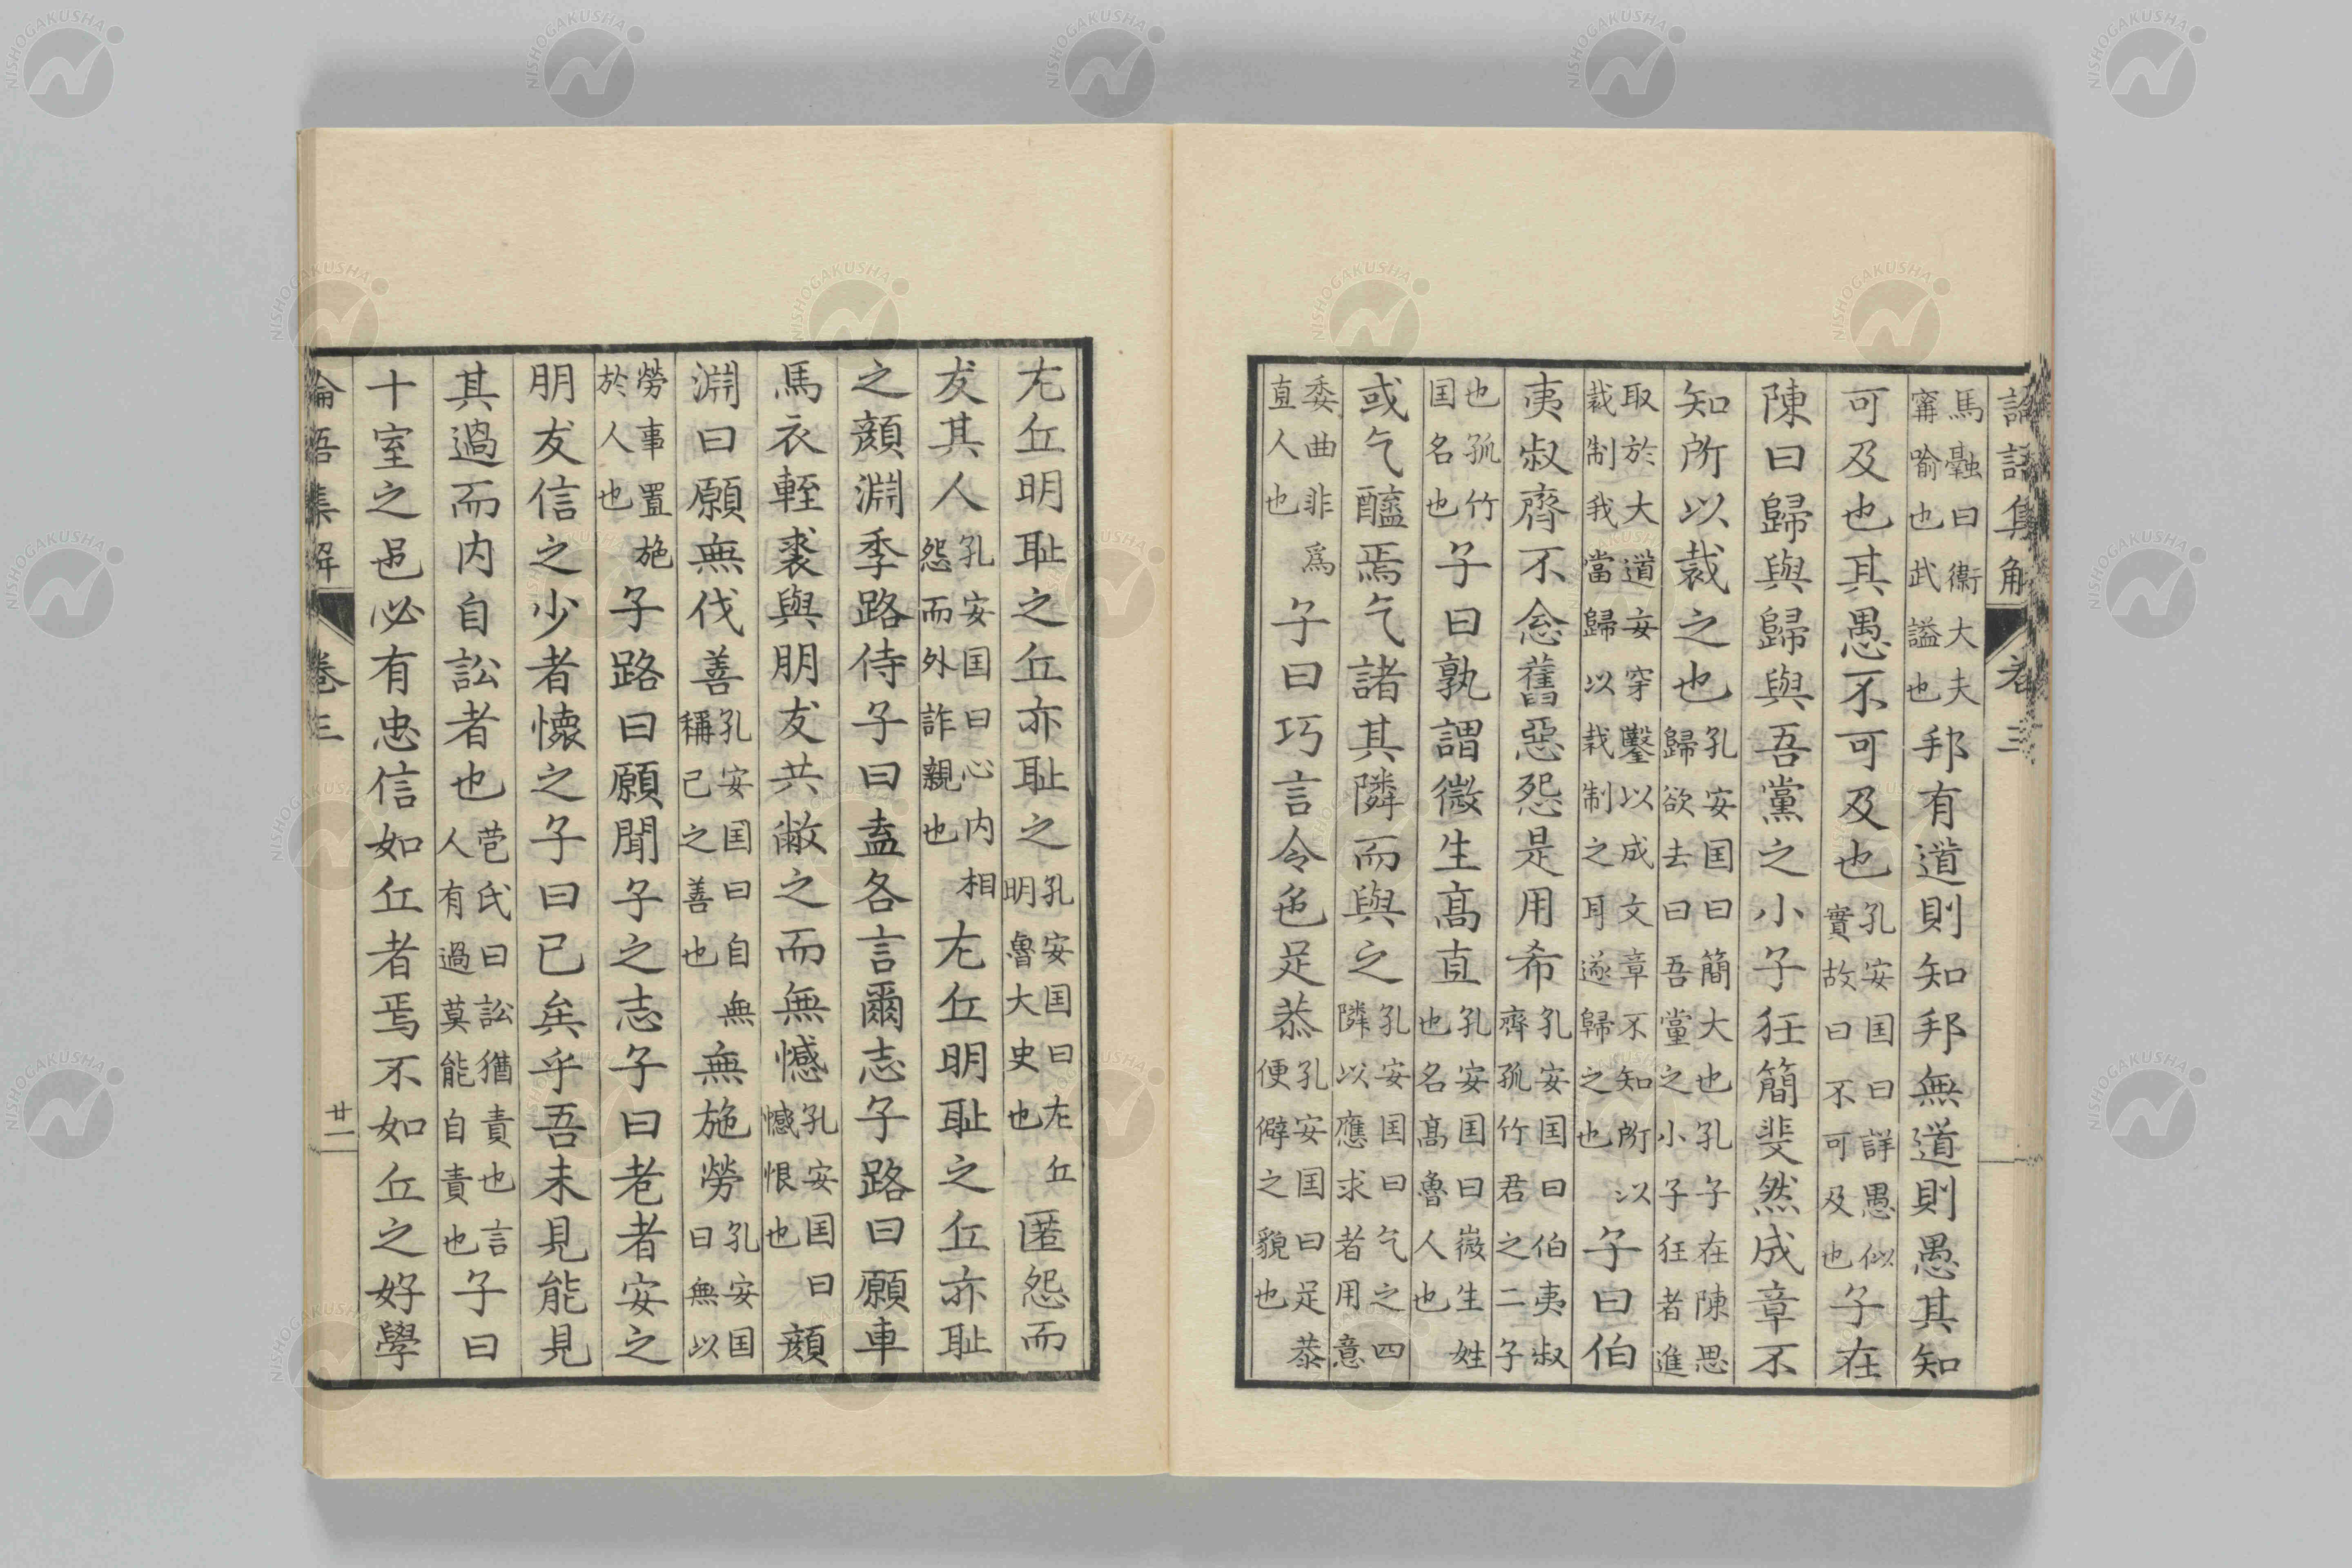 論語集解 卷三
馬融曰衞大夫甯喻也武謚也邦有道則知邦無道則愚其知
可及也其愚不可及也孔安国曰詳愚似實故曰不可及也子在
陳曰歸與歸與吾黨之小子狂簡斐然成章不
知所以裁之也孔安国曰簡大也孔子在陳思歸欲去曰吾黨之小子狂者進
取於大道妄穿鑿以成文章不知所以裁制我當歸以裁制之耳遂歸之也子曰伯
夷叔齊不念舊惡怨是用希孔安国曰伯夷叔齊孤竹君之二子
也孤竹国名也子曰孰謂微生髙直孔安国曰微生姓也名髙魯人也
或乞醯焉乞諸其隣而與之孔安国曰乞之四隣以應求者用意
委曲非爲直人也子曰巧言令色足恭孔安国曰足恭便僻之貌也
左丘明耻之丘亦耻之孔安国曰左丘明魯大史也匿怨而
友其人孔安国曰心内相怨而外詐親也左丘明耻之丘亦耻
之顔淵季路侍子曰盍各言爾志子路曰願車
馬衣輕裘與朋友共敝之而無憾孔安国曰憾恨也顔
淵曰願無伐善孔安国曰自無稱己之善也無施勞孔安国曰無以
勞事置施於人也子路曰願聞子之志子曰老者安之
朋友信之少者懷之子曰已矣乎吾未見能見
其過而内自訟者也苞氏曰訟猶責也言人有過莫能自責也子曰
十室之邑必有忠信如丘者焉不如丘之好學
論語集解 卷三 廿二
NISHOGAKUSHA